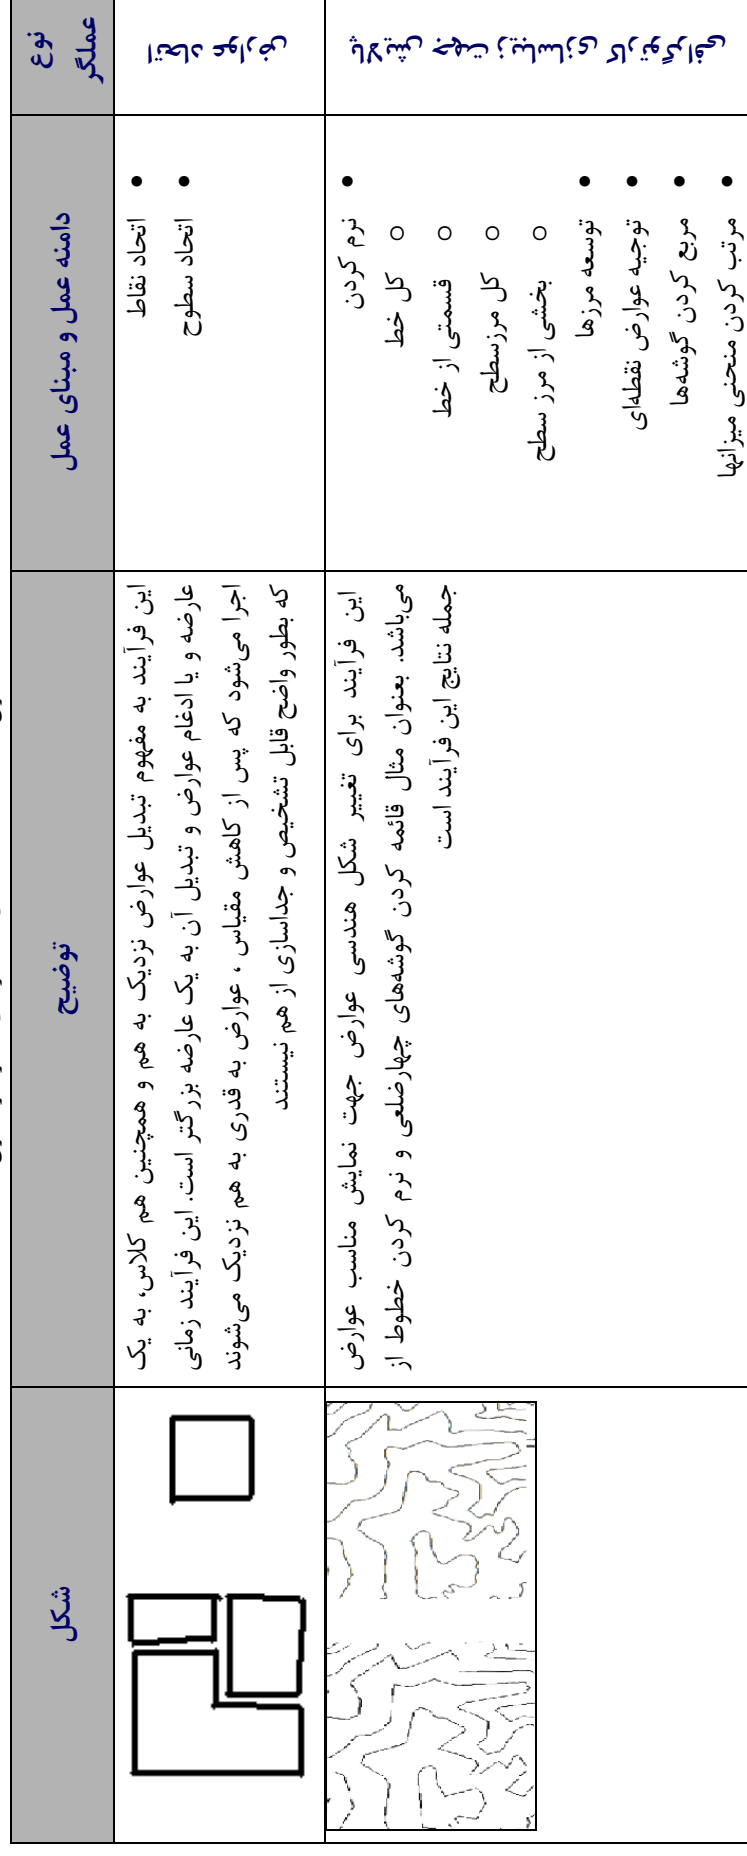 نوع
عملگر
دامنه عمل و مبنای عمل
توضیح
شکل
اتحاد عوارض
اتحاد نقاط
اتحاد سطوح
این فرآیند به مفهوم تبدیل عوارض نزدیک به هم و همچنین هم کلاس، به یک
عارضه و یا ادغام عوارض و تبدیل آن به یک عارضه بزرگتر است. این فرآیند زمانی
اجرا می‌شود که پس از کاهش مقیاس ، عوارض به قدری به هم نزدیک می‌شوند
که بطور واضح قابل تشخیص و جداسازی از هم نیستند
پالایش جهت زیباسازی کارتوگرافی
نرم کردن
کل خط
قسمتی از خط
کل مرزسطح
بخشی از مرز سطح
توسعه مرزها
توجیه عوارض نقطه‌ای
مربع کردن گوشه‌ها
مرتب کردن منحنی میزانها
این فرآیند برای تغییر شکل هندسی عوارض جهت نمایش مناسب عوارض
می‌باشد. بعنوان مثال قائمه کردن گوشه‌های چهارضلعی و نرم کردن خطوط از
جمله نتایج این فرآیند است